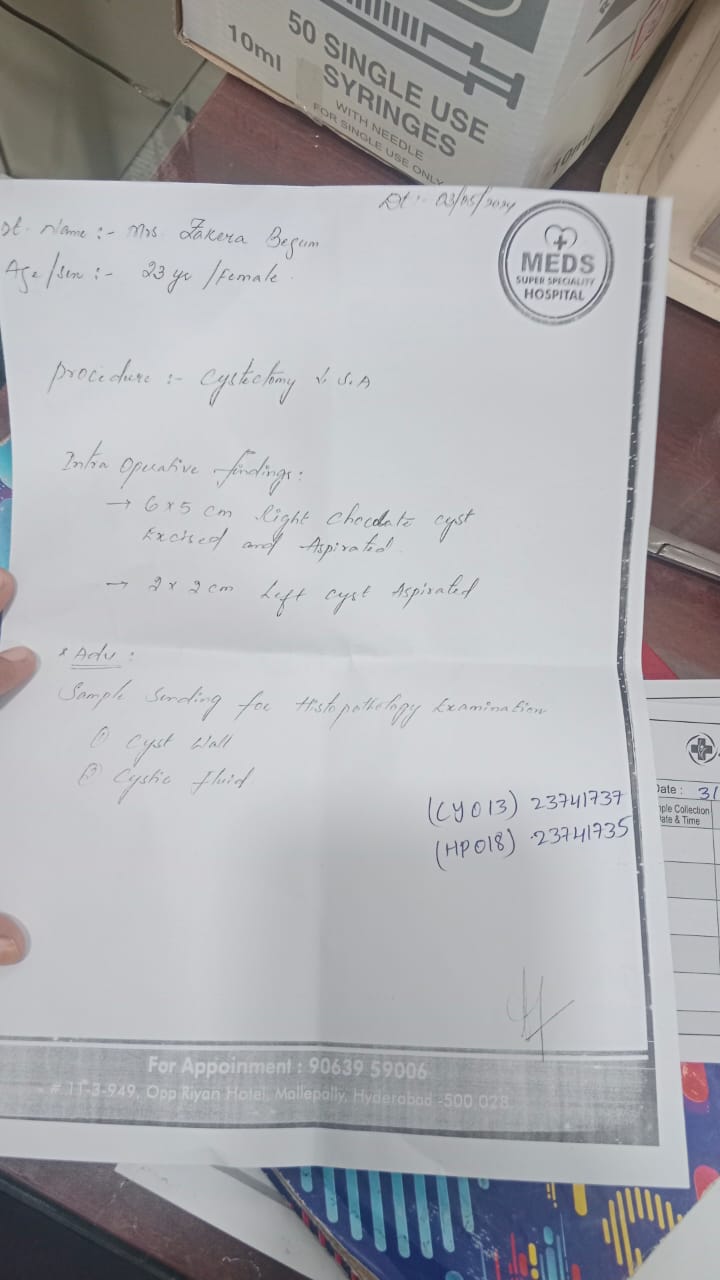 50 SINGLE USE
SYRINGES
10ml
WITH NEEDLE
FOR SINGLE USE ONLY
10ml
Dt :- 03/05/2024
Pt. Name :- Mrs. Zakera Begum
Age/Sex :- 23 yr /Female.
MEDS
SUPER SPECIALITY
HOSPITAL
Procedure :- Cystectomy S.A
Intra Operative findings :
→ 6 x 5 cm Right Chocolate cyst
Excised and Aspirated.
→ 2 x 2 cm Left cyst Aspirated
* Adv :
Sample Sending for Histopathology Examination
① Cyst Wall
② Cystic fluid
(CY013) 23741737
(HP018) 23741735
For Appoinment : 90639 59006
# 11-3-949, Opp Riyan Hotel, Mallepally, Hyderabad -500 028
Date : 31
ple Collection
ate & Time